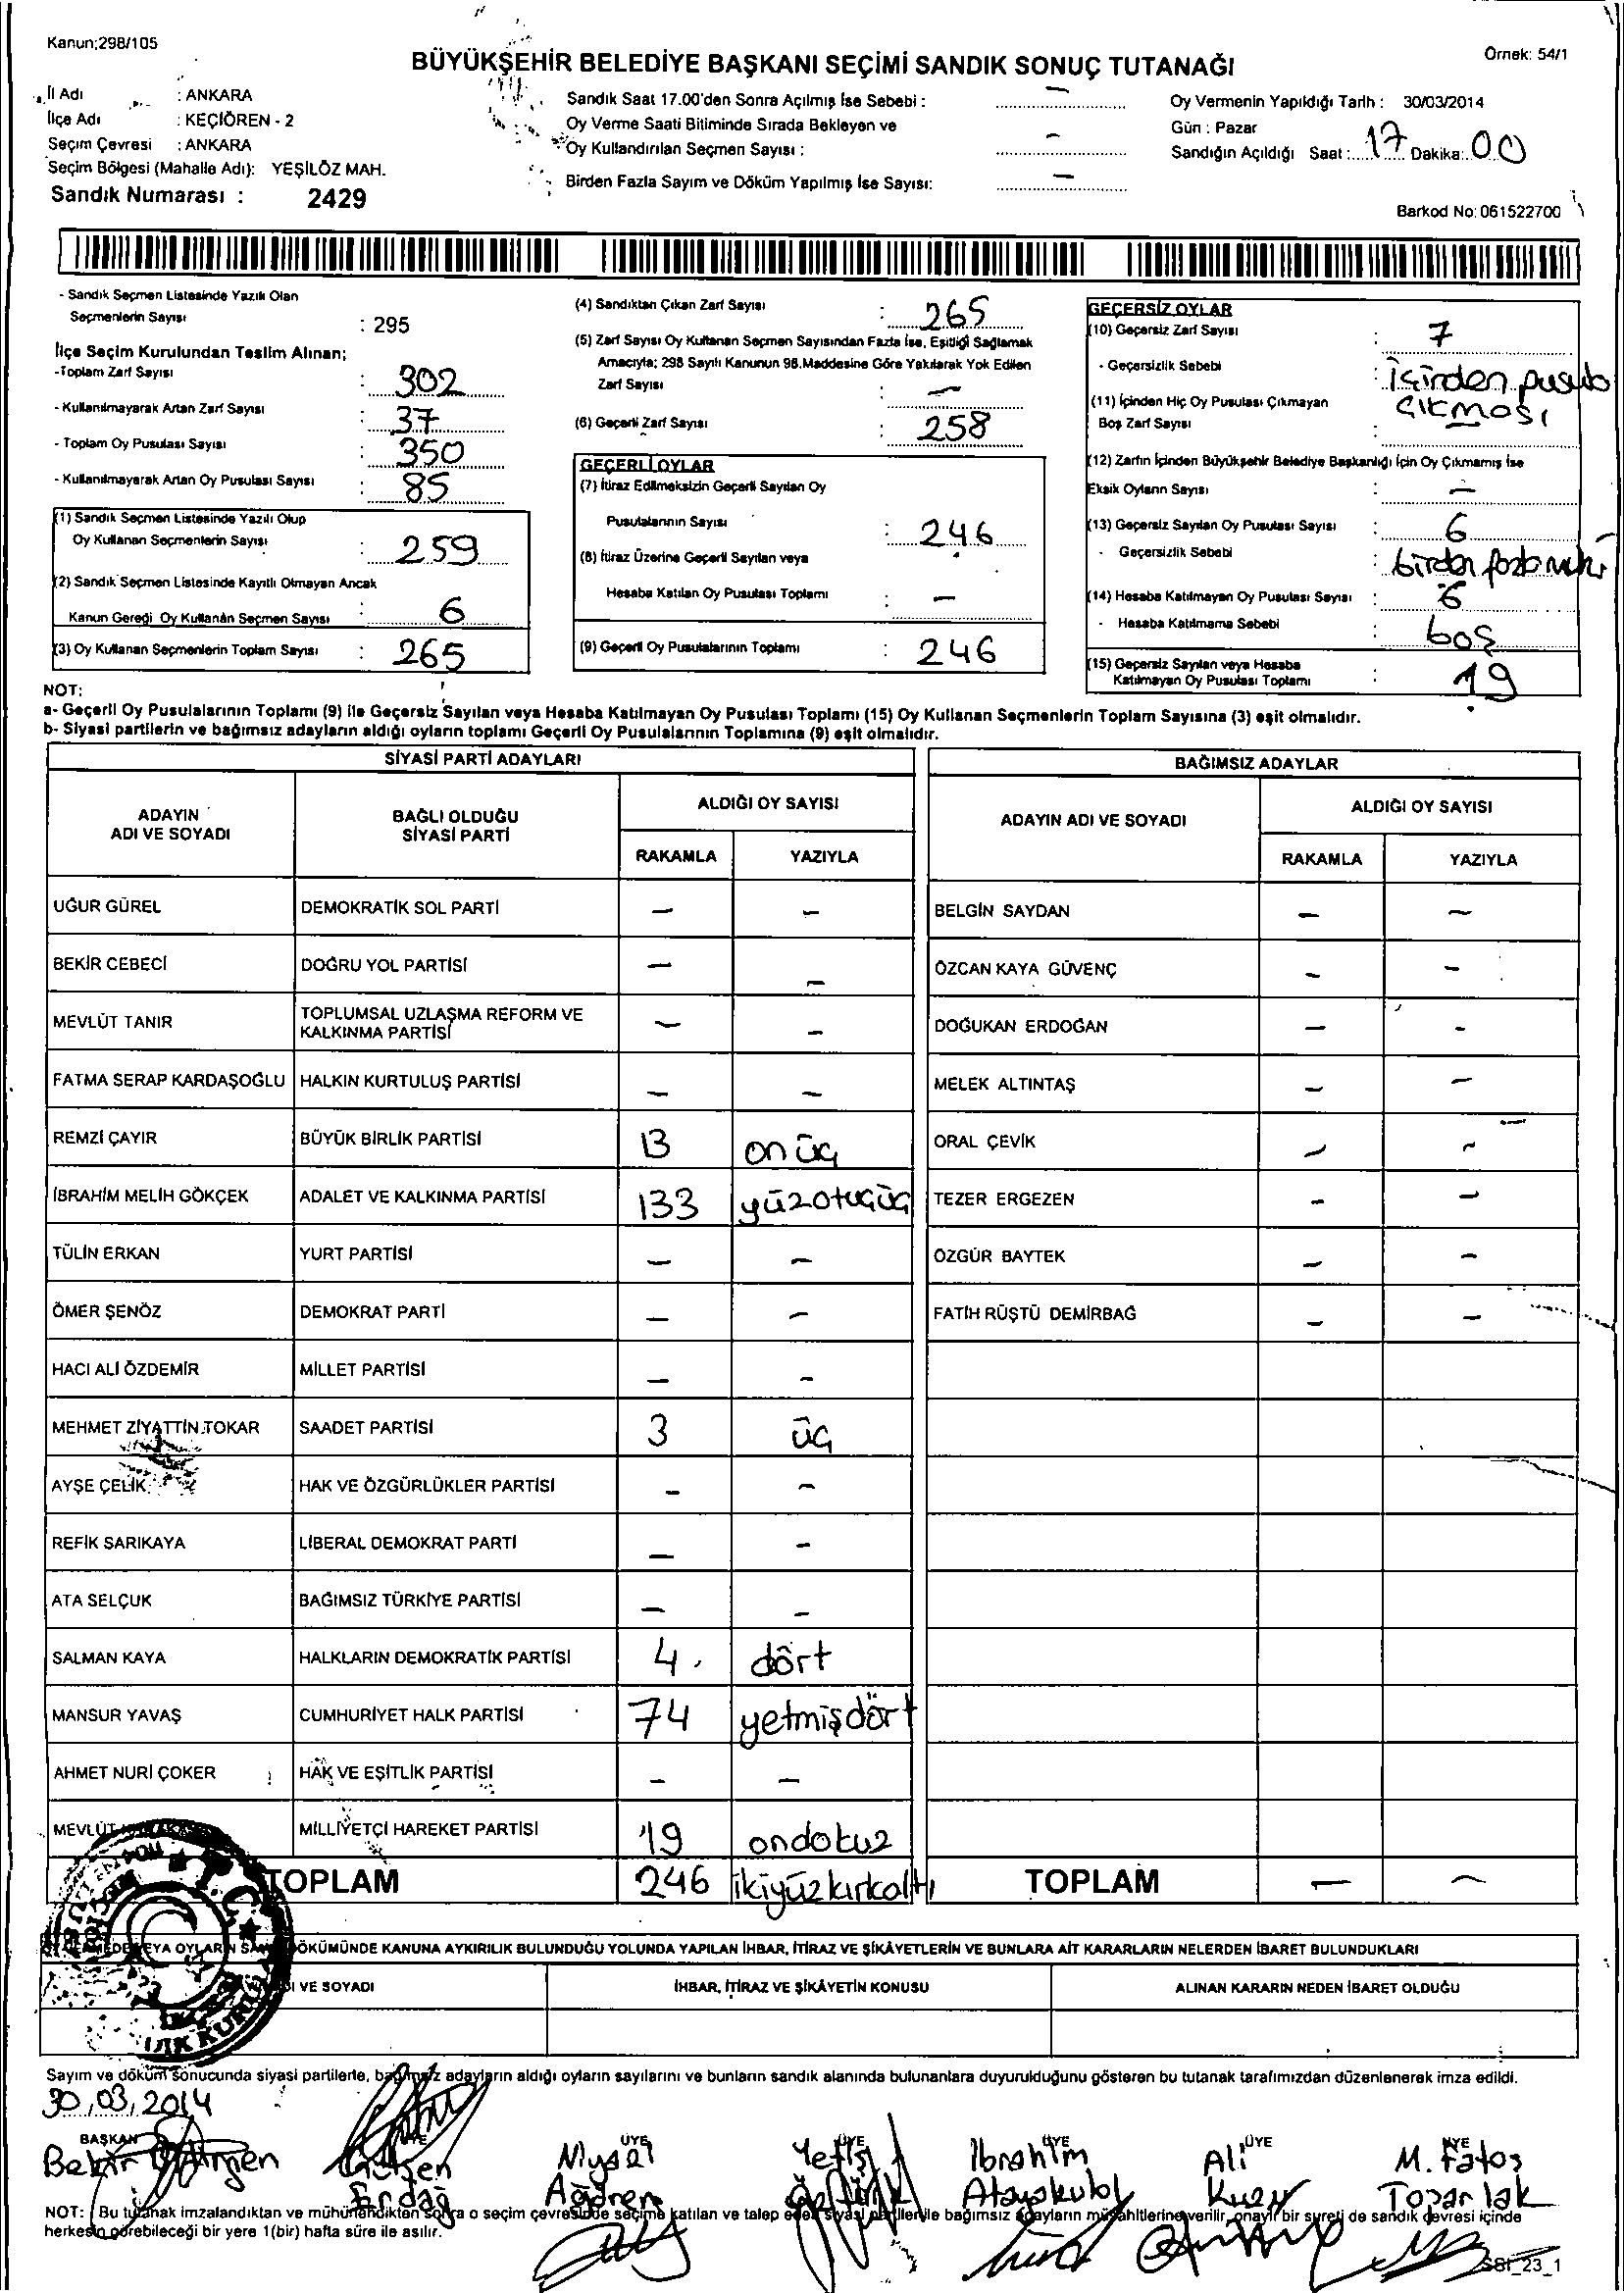 Kanun;298/105
Örnek: 54/1
BÜYÜKŞEHİR BELEDİYE BAŞKANI SEÇİMİ SANDIK SONUÇ TUTANAĞI
İl Adı : ANKARA
İlçe Adı : KEÇİÖREN - 2
Seçim Çevresi : ANKARA
Seçim Bölgesi (Mahalle Adı): YEŞİLÖZ MAH.
Sandık Numarası : 2429
Sandık Saat 17.00'den Sonra Açılmış İse Sebebi : –
Oy Verme Saati Bitiminde Sırada Bekleyen ve
Oy Kullandırılan Seçmen Sayısı : –
Birden Fazla Sayım ve Döküm Yapılmış İse Sayısı: –
Oy Vermenin Yapıldığı Tarih : 30/03/2014
Gün : Pazar
Sandığın Açıldığı Saat :....17.... Dakika:..00
Barkod No: 061522700
- Sandık Seçmen Listesinde Yazılı Olan
Seçmenlerin Sayısı : 295
İlçe Seçim Kurulundan Teslim Alınan;
-Toplam Zarf Sayısı : 302
- Kullanılmayarak Artan Zarf Sayısı : 37
- Toplam Oy Pusulası Sayısı : 350
- Kullanılmayarak Artan Oy Pusulası Sayısı : 85
(1) Sandık Seçmen Listesinde Yazılı Olup
Oy Kullanan Seçmenlerin Sayısı : 259
(2) Sandık Seçmen Listesinde Kayıtlı Olmayan Ancak
Kanun Gereği Oy Kullanan Seçmen Sayısı : 6
(3) Oy Kullanan Seçmenlerin Toplam Sayısı : 265
(4) Sandıktan Çıkan Zarf Sayısı : 265
(5) Zarf Sayısı Oy Kullanan Seçmen Sayısından Fazla İse, Eşitliği Sağlamak
Amacıyla; 298 Sayılı Kanunun 98.Maddesine Göre Yakılarak Yok Edilen
Zarf Sayısı : –
(6) Geçerli Zarf Sayısı : 258
GEÇERLİ OYLAR
(7) İtiraz Edilmeksizin Geçerli Sayılan Oy
Pusulalarının Sayısı : 246
(8) İtiraz Üzerine Geçerli Sayılan veya
Hesaba Katılan Oy Pusulası Toplamı : –
(9) Geçerli Oy Pusulalarının Toplamı : 246
GEÇERSİZ OYLAR
(10) Geçersiz Zarf Sayısı : 7
- Geçersizlik Sebebi : içinden pusula
çıkması
(11) İçinden Hiç Oy Pusulası Çıkmayan
Boş Zarf Sayısı :
(12) Zarfın İçinden Büyükşehir Belediye Başkanlığı İçin Oy Çıkmamış İse
Eksik Oyların Sayısı : –
(13) Geçersiz Sayılan Oy Pusulası Sayısı : 6
- Geçersizlik Sebebi : birden fazla
(14) Hesaba Katılmayan Oy Pusulası Sayısı : 6
- Hesaba Katılmama Sebebi : boş
(15) Geçersiz Sayılan veya Hesaba
Katılmayan Oy Pusulası Toplamı : 19
NOT:
a- Geçerli Oy Pusulalarının Toplamı (9) ile Geçersiz Sayılan veya Hesaba Katılmayan Oy Pusulası Toplamı (15) Oy Kullanan Seçmenlerin Toplam Sayısına (3) eşit olmalıdır.
b- Siyasi partilerin ve bağımsız adayların aldığı oyların toplamı Geçerli Oy Pusulalarının Toplamına (9) eşit olmalıdır.
SİYASİ PARTİ ADAYLARI
ADAYIN ADI VE SOYADI BAĞLI OLDUĞU SİYASİ PARTİ ALDIĞI OY SAYISI
RAKAMLA YAZIYLA
UĞUR GÜREL DEMOKRATİK SOL PARTİ – –
BEKİR CEBECİ DOĞRU YOL PARTİSİ – –
MEVLÜT TANIR TOPLUMSAL UZLAŞMA REFORM VE KALKINMA PARTİSİ – –
FATMA SERAP KARDAŞOĞLU HALKIN KURTULUŞ PARTİSİ – –
REMZİ ÇAYIR BÜYÜK BİRLİK PARTİSİ 13 onüç
İBRAHİM MELİH GÖKÇEK ADALET VE KALKINMA PARTİSİ 133 yüzotuçüç
TÜLİN ERKAN YURT PARTİSİ – –
ÖMER ŞENÖZ DEMOKRAT PARTİ – –
HACI ALİ ÖZDEMİR MİLLET PARTİSİ – –
MEHMET ZİYATTİN TOKAR SAADET PARTİSİ 3 üç
AYŞE ÇELİK HAK VE ÖZGÜRLÜKLER PARTİSİ – –
REFİK SARIKAYA LİBERAL DEMOKRAT PARTİ – –
ATA SELÇUK BAĞIMSIZ TÜRKİYE PARTİSİ – –
SALMAN KAYA HALKLARIN DEMOKRATİK PARTİSİ 4 dört
MANSUR YAVAŞ CUMHURİYET HALK PARTİSİ 74 yetmişdört
AHMET NURİ ÇOKER HAK VE EŞİTLİK PARTİSİ – –
MEVLÜT MİLLİYETÇİ HAREKET PARTİSİ 19 ondokuz
TOPLAM 246 ikiyüzkırkaltı
BAĞIMSIZ ADAYLAR
ADAYIN ADI VE SOYADI ALDIĞI OY SAYISI
RAKAMLA YAZIYLA
BELGİN SAYDAN – –
ÖZCAN KAYA GÜVENÇ – –
DOĞUKAN ERDOĞAN – –
MELEK ALTINTAŞ – –
ORAL ÇEVİK – –
TEZER ERGEZEN – –
ÖZGÜR BAYTEK – –
FATİH RÜŞTÜ DEMİRBAĞ – –
TOPLAM – –
OYLARIN DÖKÜMÜNDE KANUNA AYKIRILIK BULUNDUĞU YOLUNDA YAPILAN İHBAR, İTİRAZ VE ŞİKÂYETLERİN VE BUNLARA AİT KARARLARIN NELERDEN İBARET BULUNDUKLARI
VE SOYADI İHBAR, İTİRAZ VE ŞİKÂYETİN KONUSU ALINAN KARARIN NEDEN İBARET OLDUĞU
Sayım ve döküm sonucunda siyasi partilerle, bağımsız adayların aldığı oyların sayılarını ve bunların sandık alanında bulunanlara duyurulduğunu gösteren bu tutanak tarafımızdan düzenlenerek imza edildi.
30.03.2014
BAŞKAN ÜYE ÜYE ÜYE ÜYE ÜYE
Bekir Gülşen Niyazi Yetiş İbrahim Ali M. Fatoş
Erdağ Ağören Kuzu Toparlak
NOT: Bu tutanak imzalandıktan ve mühürlendikten sonra o seçim çevresinde seçime katılan ve talep eden siyasi partilerle bağımsız adayların müşahitlerine verilir, onaylı bir sureti de sandık çevresi içinde
herkesin görebileceği bir yere 1(bir) hafta süre ile asılır.
SSI_23_1